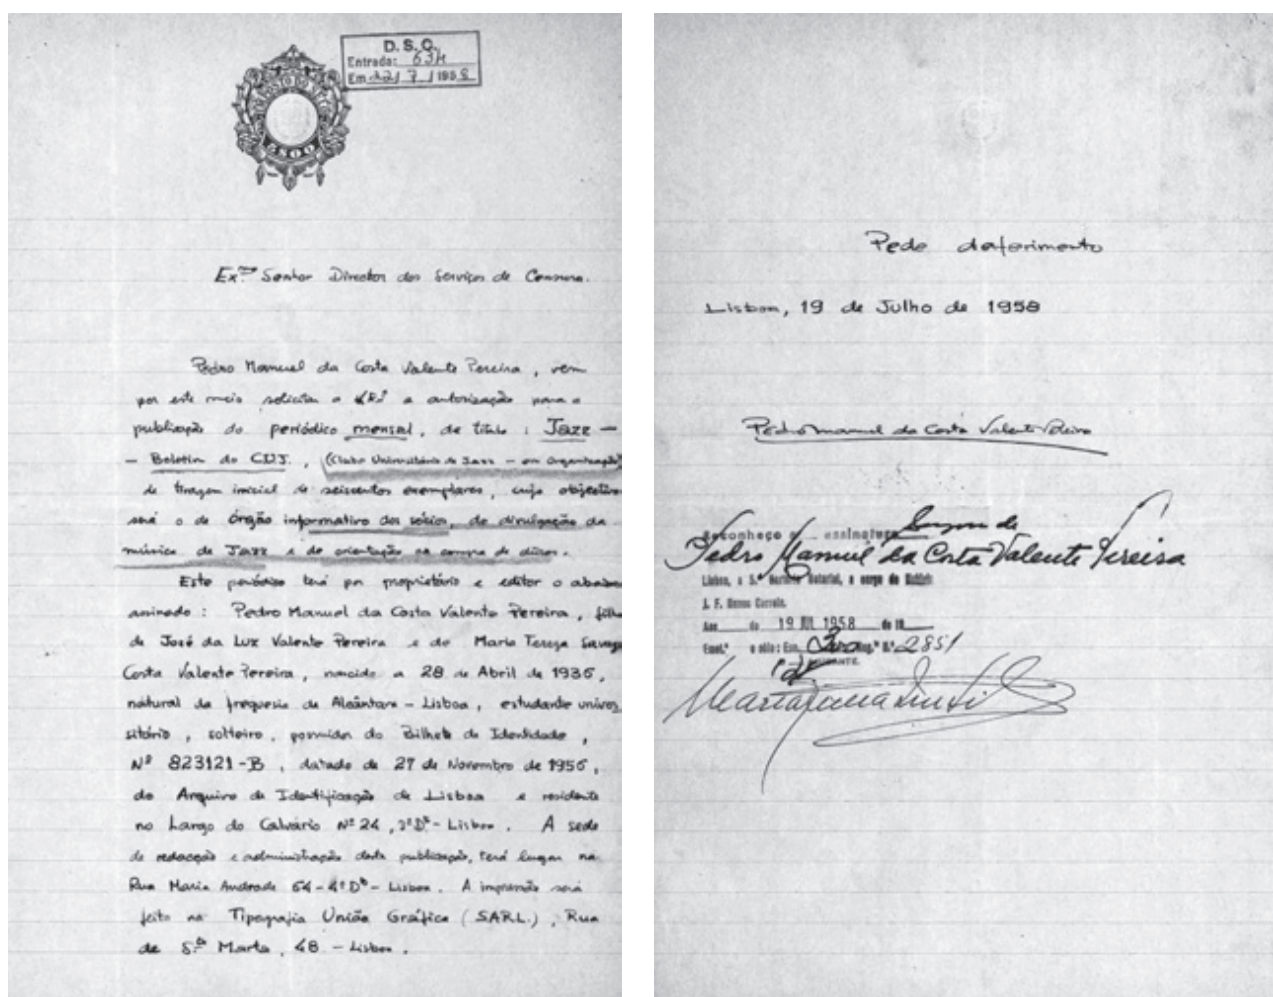 D.S.C.
Entrada: 634
Em 22/7/1958
ESC00
Ex.mo Senhor Director dos Serviços de Censura.
Pedro Manuel da Costa Valente Pereira, vem
por este meio solicitar a V.Ex.ª a autorização para a
publicação do periódico mensal, de título: Jazz —
— Boletim do CUJ., (Clube Universitário de Jazz — em organização)
de tiragem inicial de seiscentos exemplares, cujo objectivo
será o de órgão informativo dos sócios, de divulgação da
música de Jazz e de orientação na compra de discos.
Este periódico terá por proprietário e editor o abaixo
assinado: Pedro Manuel da Costa Valente Pereira, filho
de José da Luz Valente Pereira e de Maria Teresa Savage
Costa Valente Pereira, nascido a 28 de Abril de 1936,
natural da freguesia de Alcântara - Lisboa, estudante univer
sitário, solteiro, possuidor do Bilhete de Identidade,
Nº 823121-B, datado de 27 de Novembro de 1956,
do Arquivo de Identificação de Lisboa e residente
no Largo do Calvário Nº 24, 3º Dº - Lisboa. A sede
de redacção e administração desta publicação, terá lugar na
Rua Maria Andrade 64-4º Dº - Lisboa. A impressão será
feita na Tipografia União Gráfica (SARL.), Rua
de S.ta Marta, 48 - Lisboa.
Pede deferimento
Lisboa, 19 de Julho de 1958
Pedro Manuel da Costa Valente Pereira
Reconheço a assinatura supra de
Pedro Manuel da Costa Valente Pereira
Lisboa, e 5.º Cartório Notarial, a cargo do Notário
J. F. Correia.
Aos 19 JUL. 1958 de 19
e sêlo: Esc. Reg.º N.º 2851